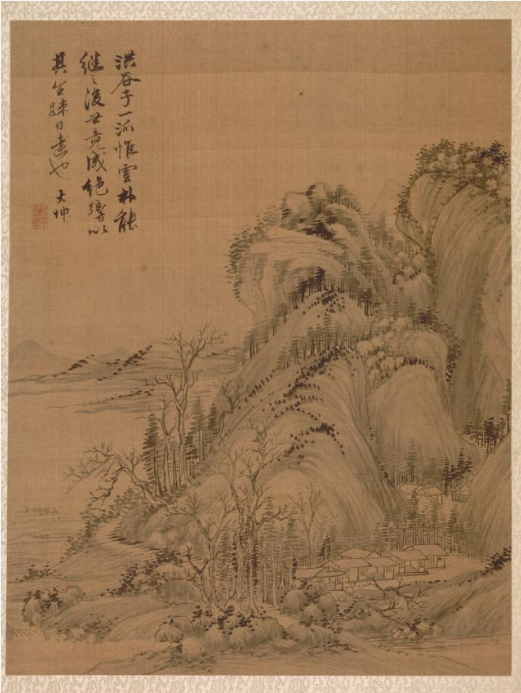 洪谷子一派惟雲林能
繼之後世竟成絕響以
其生疎日遠也 大坤